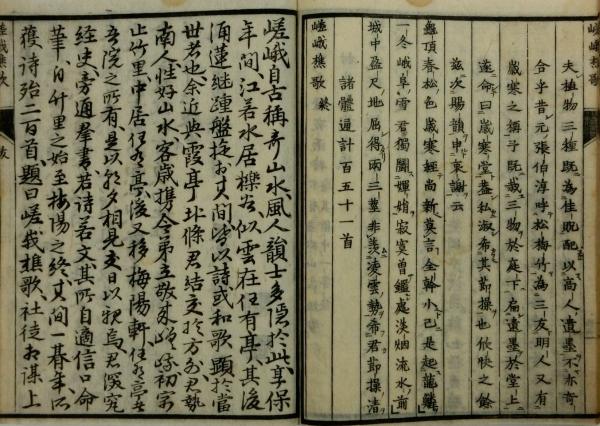 夫植物三種既為佳既配以高人遺墨不亦奇
合乎昔元張伯淳呼松梅竹為三友明人又有
歲寒之稱予既栽三物於庭下扁遺墨於堂上
遂命曰歲寒堂蓋私淑希其節操也欣
之餘
茲次賜韻申衷謝云
盤頂春松色歲寒經尚新裏言全幹小已是起龍鱗
一冬峨阜雪君獨圖嬋娟寂寞曾鑑處淡烟流水前
城中盈尺地屈得兩三莖非羨凌雲勢希君節操清
諸體通計百五十一首
嵯峨樵歌 終
嵯峨自古稱奇山水風人韻士多隱於此享保
年間江若水居櫟谷似雲在任有亭其後
涌蓮継踵盤旋於其間皆以詩或和歌顕於當
世者也余近與霞亭北條君結交於方外君勢
南人性好山水客歳携令弟立敬來嵯峨初寓
止竹里中居任有亭後又移梅陽軒任有亭者
吾院之所有是以朝夕相見交日以親焉君深究
經史旁通羣書若詩若文其所自適信口命
筆自竹里之始至梅陽之終其間一暮年所
獲詩殆二百首題曰嵯峨樵歌社徒相謀上
嵯峨樵歌